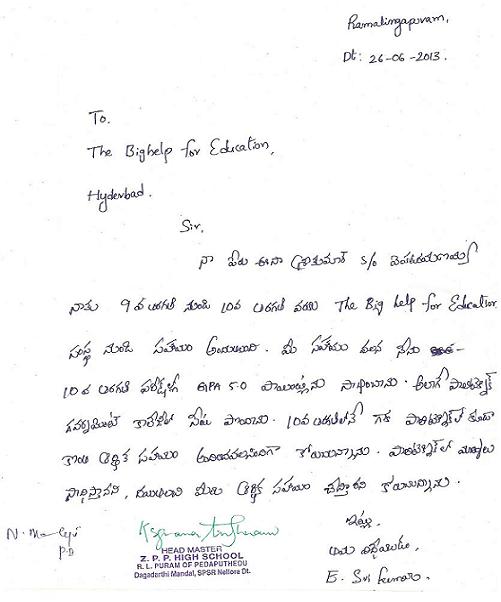 Ramalingapuram,
Dt: 26-06-2013.
To.
The Bighelp for Education,
Hyderbad.
Sir.
నా పేరు ఈనా శ్రీకుమార్ S/o
నాకు 9వ తరగతి నుండి 10వ తరగతి వరకు The Big help for Education
సంస్థ నుండి సహాయం అందినది. మీ సహాయం వలన నేను
10వ తరగతి పరీక్షల్లో GPA 5.0 పాయింట్లును సాధించాను. అలాగే పాలిటెక్నిక్
గవర్నమెంట్ కాలేజీలో సీటు పొందాను. 10వ తరగతిలోనే గాక పాలిటెక్నిక్ లో కూడా
కొంత ఆర్థిక సహాయం అందించవలసిందిగా కోరుచున్నాను. పాలిటెక్నిక్ లో మార్కులు
సాధిస్తానని, దయఉంచి మీరు ఆర్థిక సహాయం చేస్తారని కోరుచున్నాను.
ఇట్లు,
తమ విధేయుడు,
E. Sri kumar.
HEAD MASTER
Z. P. P. HIGH SCHOOL
R. L. PURAM OF PEDAPUTHEDU
Dagadarthi Mandal, SPSR Nellore Dt.